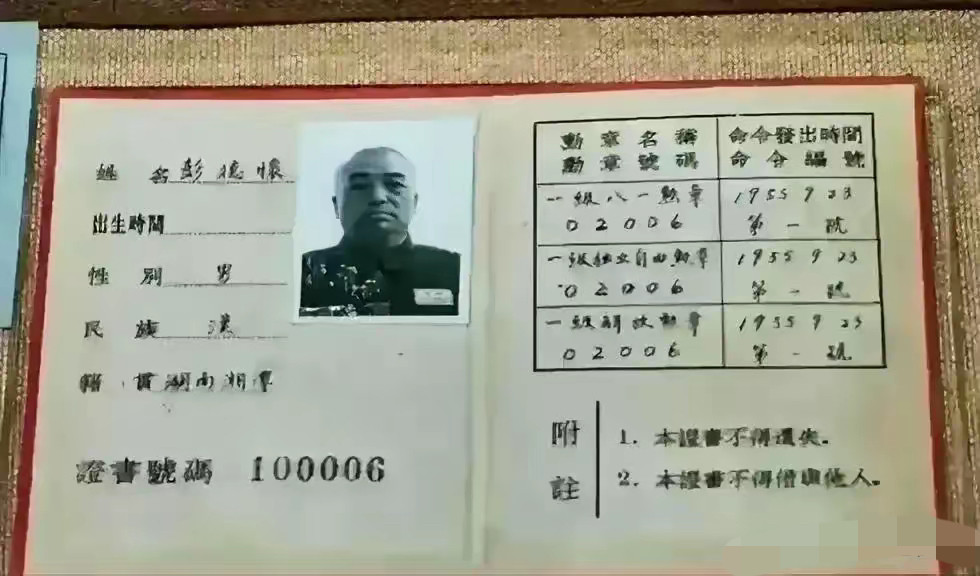 姓 名 彭德懷
出生時間
性 別 男
民 族 漢
籍 貫 湖南湘潭
證書號碼 100006
勳章名稱 命令發出時間
勳章號碼 命令編號
一級八一勳章 1955 9 23
02006 第一號
一級独立自由勳章 1955 9 23
02006 第一號
一級解放勳章 1955 9 23
02006 第一號
附註
1. 本證書不得遺失。
2. 本證書不得借與他人。